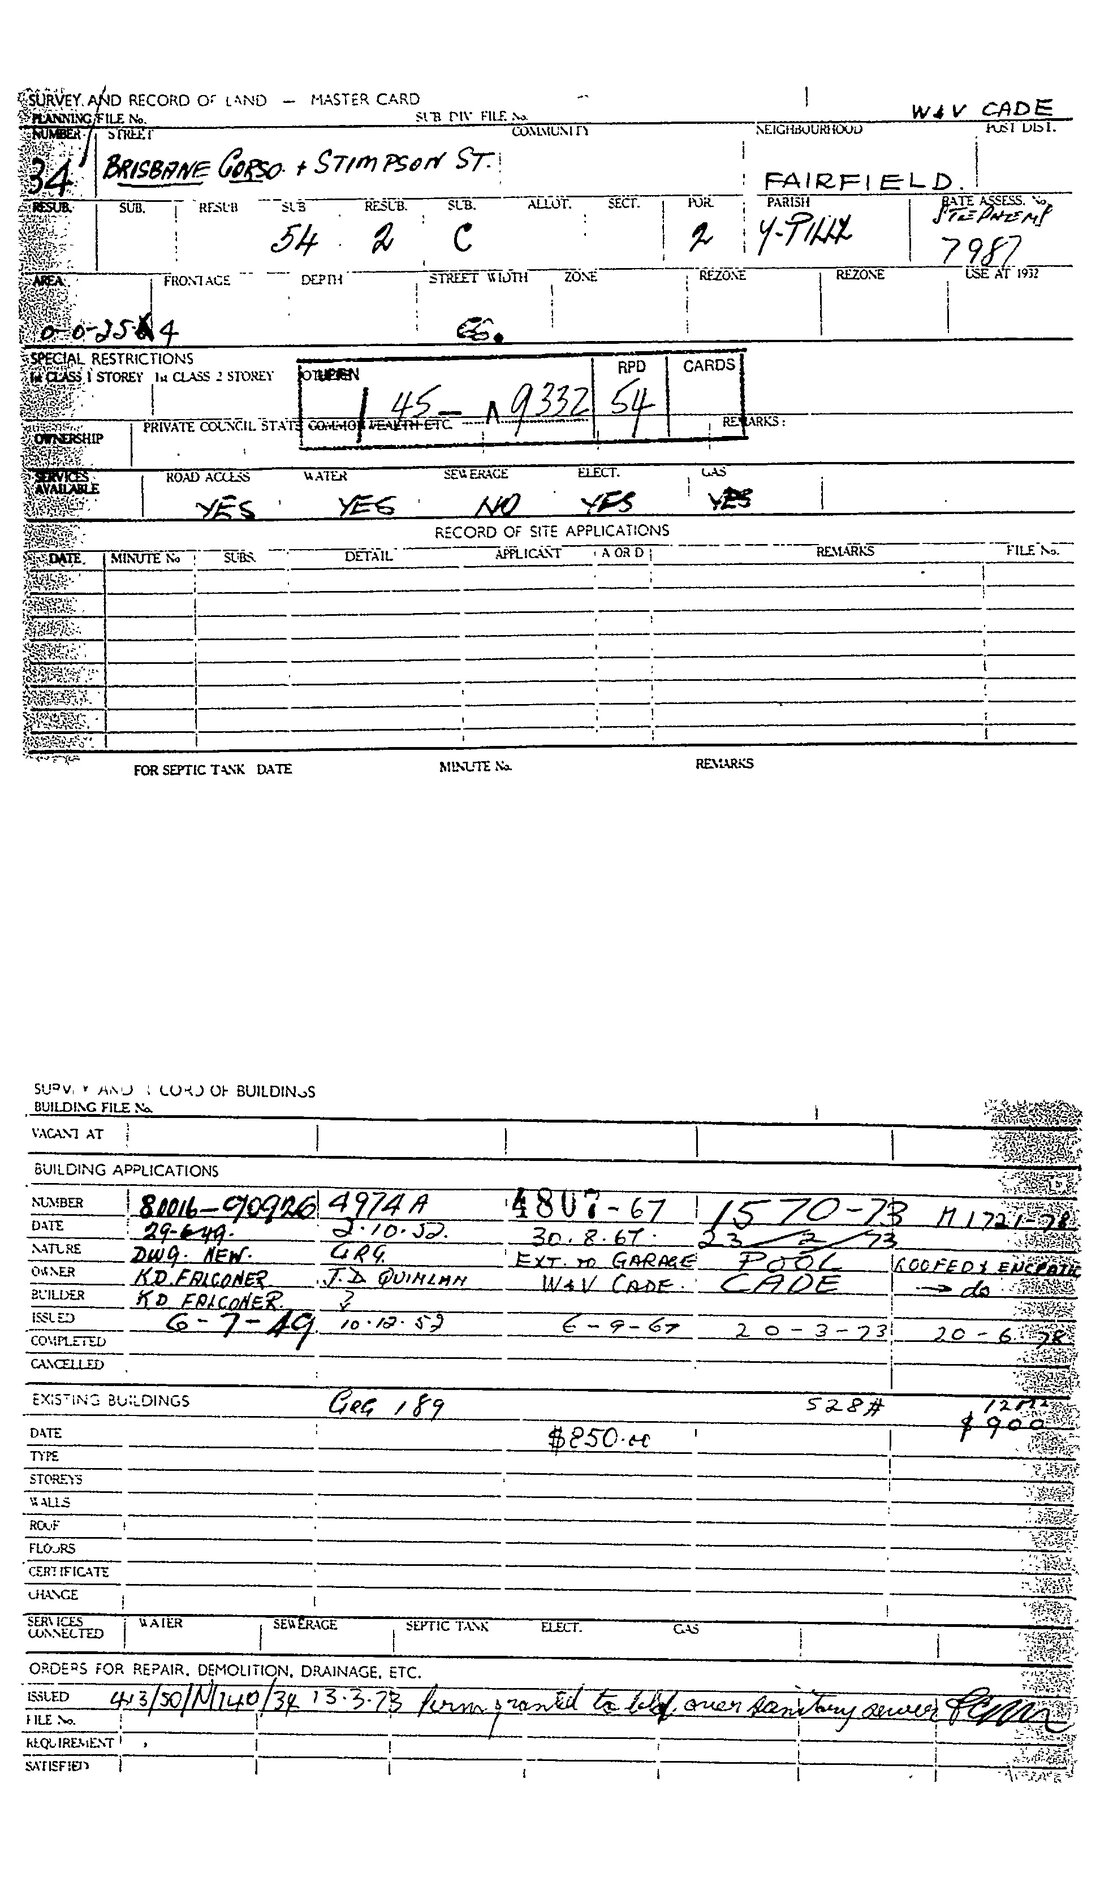 SURVEY AND RECORD OF LAND — MASTER CARD
PLANNING FILE No. SUB DIV FILE No. W & V CADE
NUMBER STREET COMMUNITY NEIGHBOURHOOD POST DIST.
34 BRISBANE CORSO & STIMPSON ST. FAIRFIELD.
RESUB. SUB. RESUB SUB RESUB. SUB. ALLOT. SECT. POR. PARISH RATE ASSESS. No.
54 2 C 2 Y-PILLY STEPHENS
7987
AREA FRONTAGE DEPTH STREET WIDTH ZONE REZONE REZONE USE AT 1952
0-0-25 4 66.
SPECIAL RESTRICTIONS
1st CLASS 1 STOREY 1st CLASS 2 STOREY RPD CARDS
45— 9332 54
OWNERSHIP PRIVATE COUNCIL STATE COMMONWEALTH ETC. REMARKS:
SERVICES AVAILABLE ROAD ACCESS WATER SEWERAGE ELECT. GAS
YES YES NO YES YES
RECORD OF SITE APPLICATIONS
DATE MINUTE No SUBS. DETAIL APPLICANT A OR D REMARKS FILE No.
FOR SEPTIC TANK DATE MINUTE No. REMARKS
SURVEY AND RECORD OF BUILDINGS
BUILDING FILE No.
VACANT AT
BUILDING APPLICATIONS
NUMBER 80016-90926 4974A 4807-67 1570-73 M1721-78
DATE 29-6-49. 2.10.52. 30.8.67. 23/2/73
NATURE DWG. NEW. GRG. EXT. TO GARAGE POOL ROOFED & ENC PATIO
OWNER K.D FALCONER J.D QUINLAN W & V CADE. CADE → do
BUILDER K.D FALCONER. ?
ISSUED 6-7-49 10.12.52 6-9-67 20-3-73 20-6-78
COMPLETED
CANCELLED
EXISTING BUILDINGS GRG 189 528# 12m2
DATE $850.00 $900
TYPE
STOREYS
WALLS
ROOF
FLOORS
CERTIFICATE
CHANGE
SERVICES CONNECTED WATER SEWERAGE SEPTIC TANK ELECT. GAS
ORDERS FOR REPAIR, DEMOLITION, DRAINAGE, ETC.
ISSUED 413/50/N140/34 13.3.73 Perm granted to bld. over sanitary sewer
FILE No.
REQUIREMENT
SATISFIED